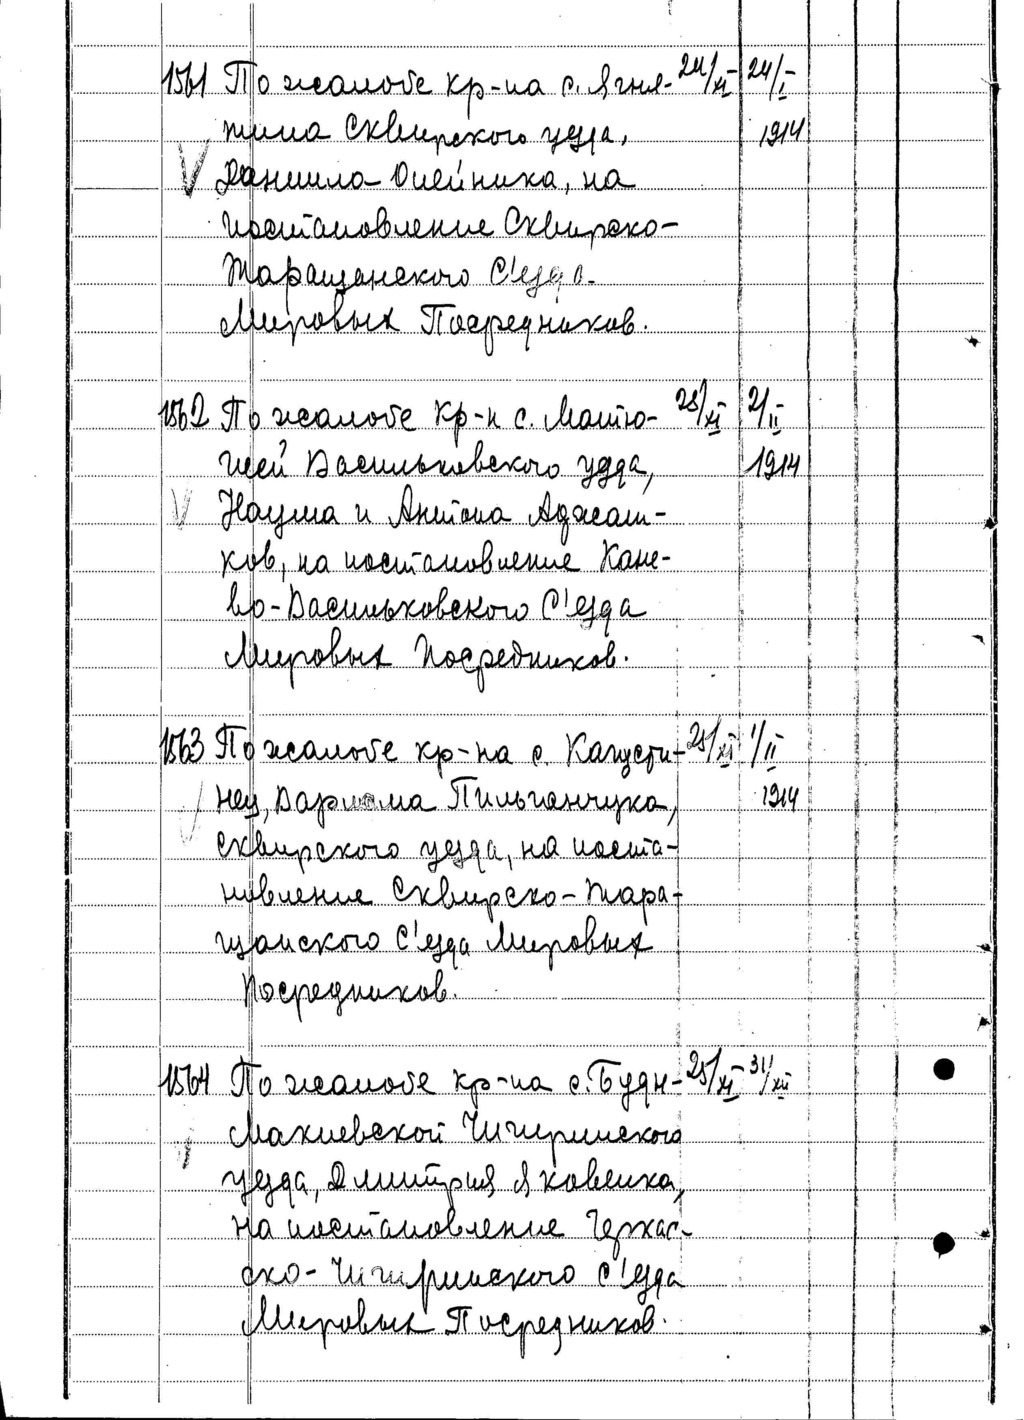 1561 По жалобе кр-на с. Ягня- 24/XI 24/I
тина Сквирского уезда, 1914
Даниила Олейника, на
постановление Сквирско-
Таращанского С'езда
Мировых Посредников.
1562 По жалобе кр-н с. Матю- 25/XI 2/II
шей Васильковского уезда, 1914
Наума и Антона Аджам-
ков, на постановление Кане-
во-Васильковского С'езда
Мировых Посредников.
1563 По жалобе кр-на с. Капусти- 25/XI 1/II
нец, Варлама Пильганчука, 1914
Сквирского уезда, на поста-
новление Сквирско-Тара-
щанского С'езда Мировых
Посредников.
1564 По жалобе кр-на с. Буды- 25/XI 31/XII
Макиевской Чигиринского
уезда, Дмитрия Яковенка,
на постановление Черкас-
ско-Чигиринского С'езда
Мировых Посредников.